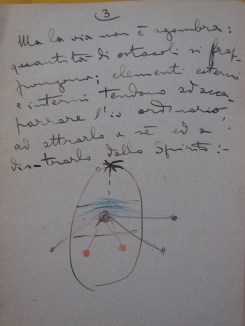 (3)
Ma la via non è sgombra:
quantità di ostacoli si frap-
pongono; elementi esterni
e interni tendono ad acca-
parrare l'io ordinario
ad attrarlo a sè ed a
distrarlo dallo Spirito:-